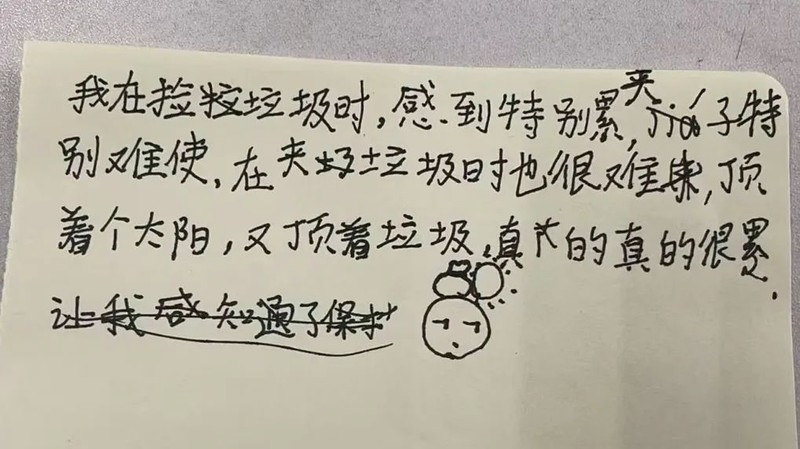 我在捡垃圾时,感到特别累,夹子特
别难使,在夹垃圾时也很难夹,顶
着个太阳,又顶着垃圾,真的真的很累.
让我感知通了保护